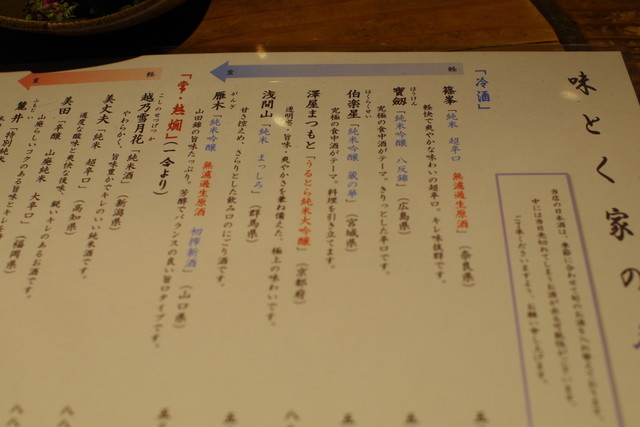 味とく家の
当店の日本酒は、季節に合わせて旬のお酒を入れ替えております。
中には当日売切れてしまうお酒が出る可能性がございます。
ご了承くださいますよう、お願い申し上げます。
「冷酒」
軽
重
篠峯「純米 超辛口 無濾過生原酒」(奈良県)
軽快で爽やかな味わいの超辛口。キレ味抜群です。
ほうけん
寶剱「純米吟醸 八反錦」(広島県)
究極の食中酒がテーマ。きりっとした辛口です。
はくらくせい
伯楽星「純米吟醸 蔵の華」(宮城県)
究極の食中酒がテーマ。料理を引き立てます。
澤屋まつもと「うるとら純米大吟醸」(京都府)
透明感・旨味・爽やかさを兼ね備えた、極上の味わいです。
浅間山「純米 まっしろ」(群馬県)
甘さ控えめ、さらりとした飲み口のにごり酒です。
がんぎ
雁木「純米吟醸 無濾過生原酒 初搾新酒」(山口県)
山田錦の旨味たっぷり。芳醇でバランスの良い旨口タイプです。
「常・熱燗」(一合より)
軽
重
こしのせつげっか
越乃雪月花「純米酒」(新潟県)
やわらかく、旨味豊かでキレのいい純米酒です。
美丈夫「純米 超辛口」(高知県)
適度な酸味と爽快な後味、鋭いキレのあるお酒です。
美田「辛醸 山廃純米 大辛口」(福岡県)
山廃らしいコクのある旨味とキレを
ふもとい
麓井「特別純米